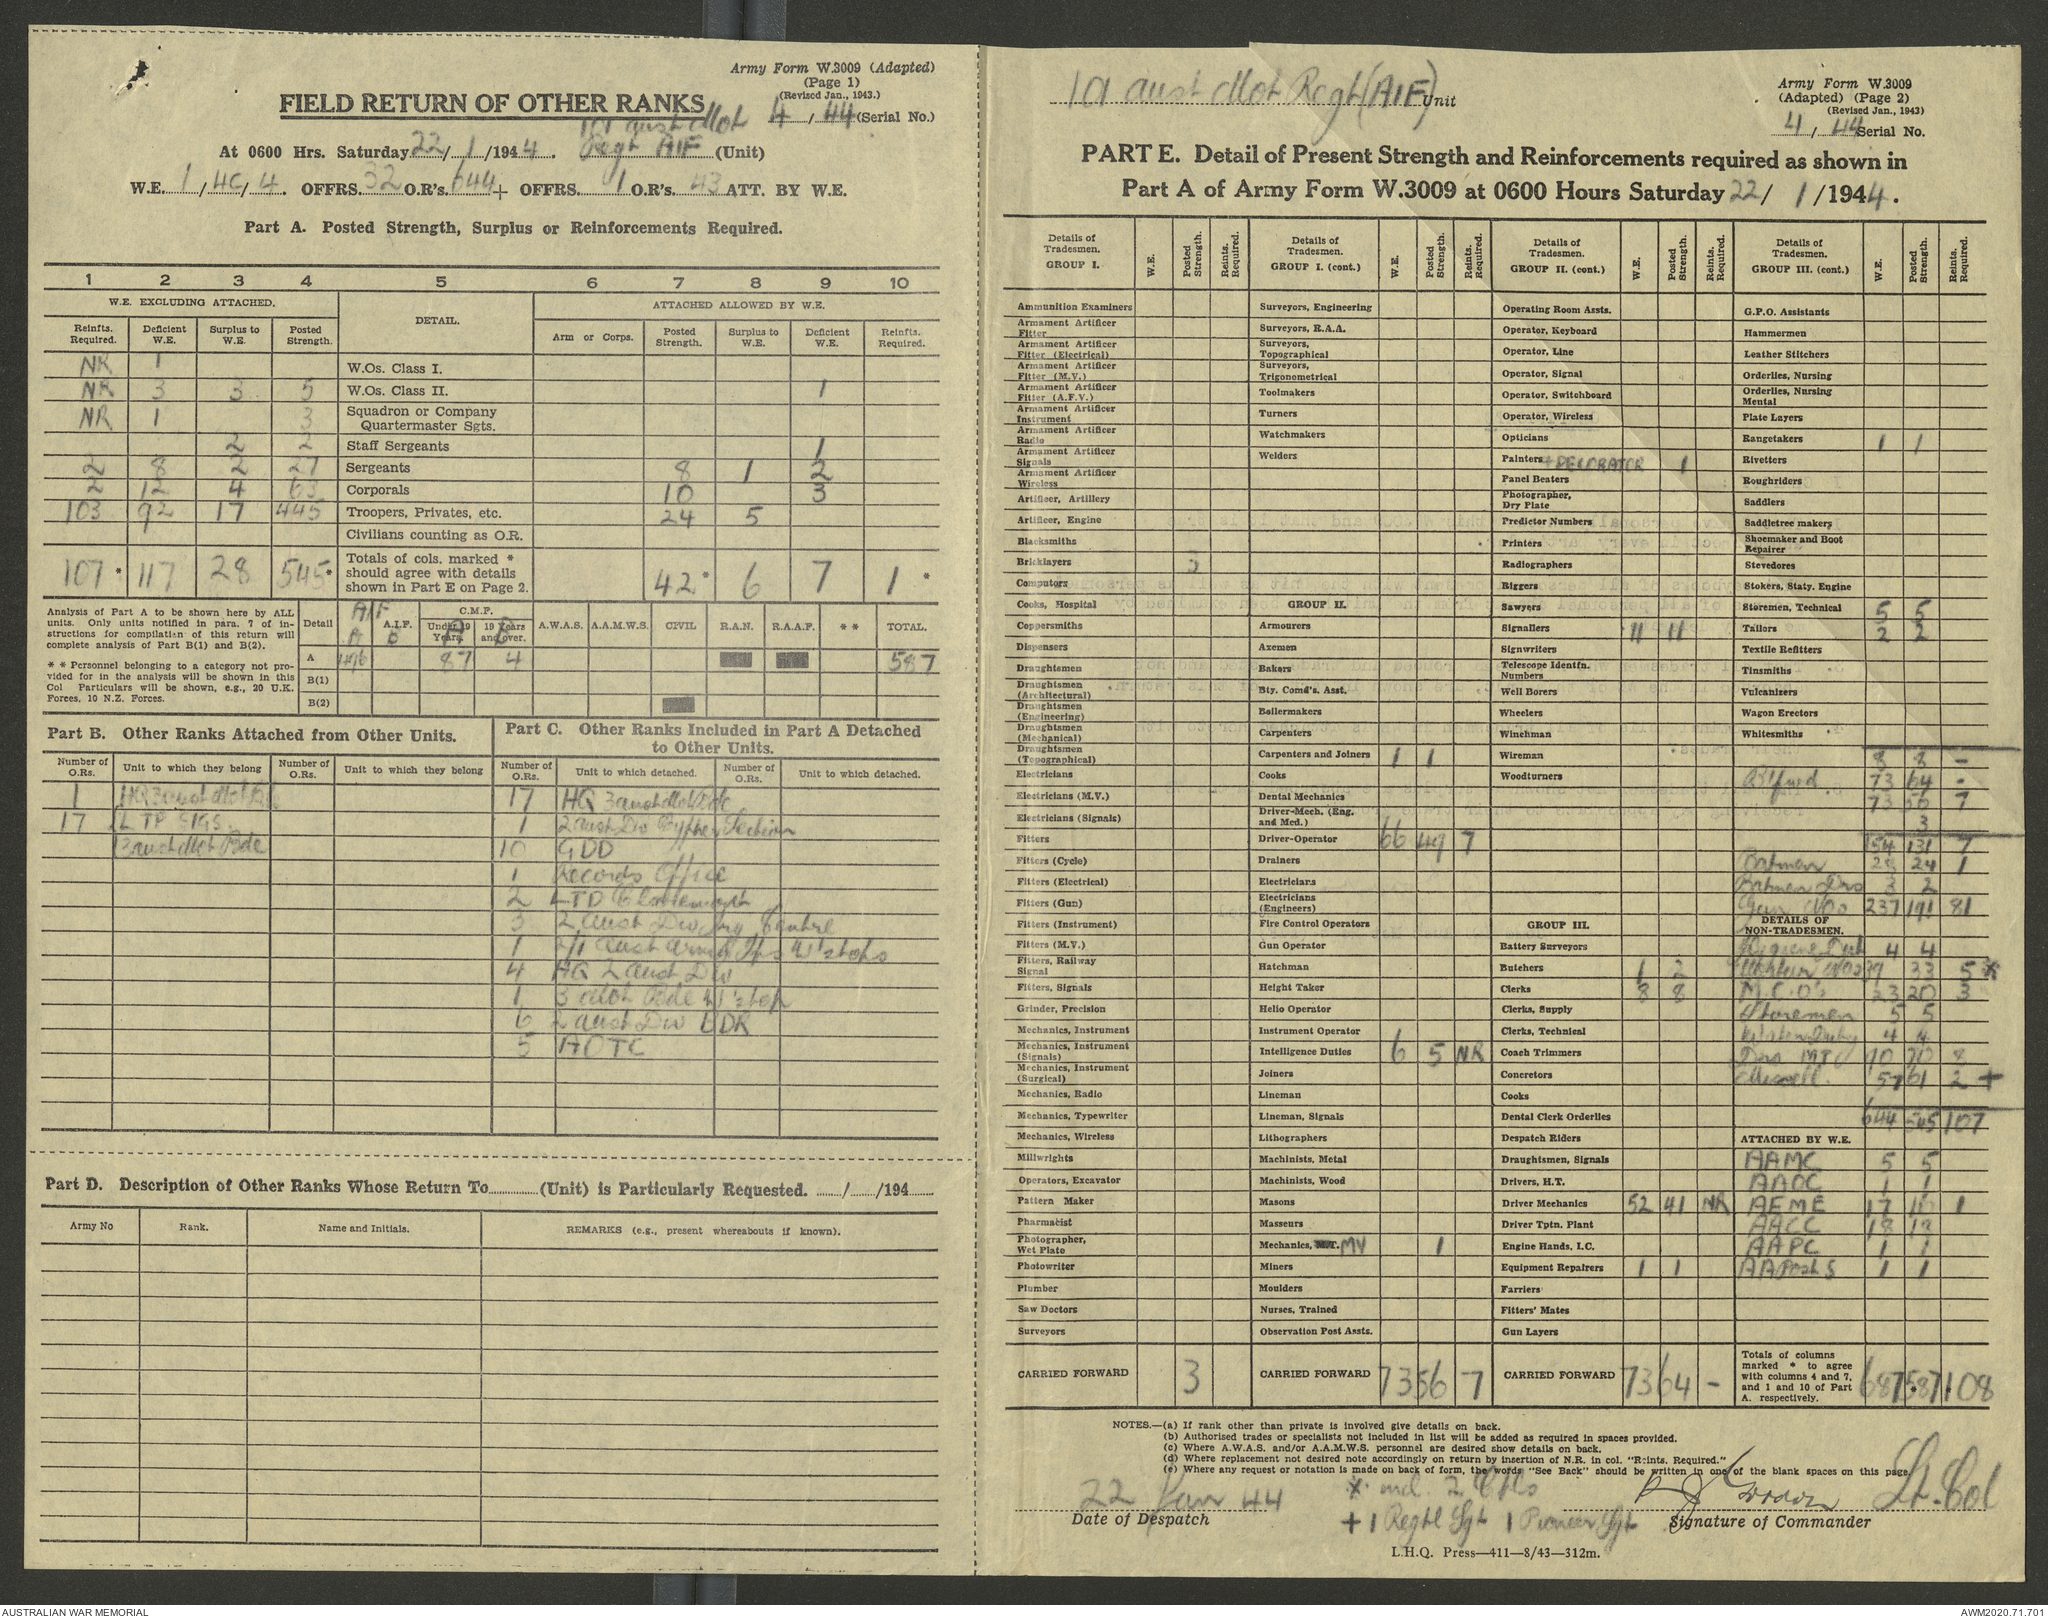 Army Form W.3009 (Adapted)
(Page 1)
(Revised Jan., 1943.)
FIELD RETURN OF OTHER RANKS
4 / 44 (Serial No.)
101 Aust Mot
At 0600 Hrs. Saturday 22/ 1 /1944. Regt AIF (Unit)
W.E. 1 / 4C / 4. OFFRS. 32 O.R's. 644 + OFFRS. 1 O.R's. 43 ATT. BY W.E.
Part A. Posted Strength, Surplus or Reinforcements Required.
1 2 3 4 5 6 7 8 9 10
W.E. EXCLUDING ATTACHED. DETAIL. ATTACHED ALLOWED BY W.E.
Reinfts. Required. Deficient W.E. Surplus to W.E. Posted Strength. Arm or Corps. Posted Strength. Surplus to W.E. Deficient W.E. Reinfts. Required.
NR 1 W.Os. Class I.
NR 3 3 5 W.Os. Class II. 1
NR 1 3 Squadron or Company Quartermaster Sgts.
2 2 Staff Sergeants 1
2 8 2 27 Sergeants 8 1 2
2 12 4 63 Corporals 10 3
103 92 17 445 Troopers, Privates, etc. 24 5
Civilians counting as O.R.
107 * 117 28 545 * Totals of cols. marked * should agree with details shown in Part E on Page 2. 42 * 6 7 1 *
Analysis of Part A to be shown here by ALL
units. Only units notified in para. 7 of in-
structions for compilation of this return will
complete analysis of Part B(1) and B(2).
* * Personnel belonging to a category not pro-
vided for in the analysis will be shown in this
Col Particulars will be shown, e.g., 20 U.K.
Forces, 10 N.Z. Forces.
Detail AIF A A.I.F. B C.M.F. Under 19 Years. A 19 Years and over. B A.W.A.S. A.A.M.W.S. CIVIL R.A.N. R.A.A.F. * * TOTAL.
A 496 87 4 587
B(1)
B(2)
Part B. Other Ranks Attached from Other Units.
Number of O.Rs. Unit to which they belong Number of O.Rs. Unit to which they belong
1 HQ 3 Aust Mot Bde
17 L TP SIGS
3 Aust Mot Bde
Part C. Other Ranks Included in Part A Detached
to Other Units.
Number of O.Rs. Unit to which detached. Number of O.Rs. Unit to which detached.
17 HQ 3 Aust Mot Bde
1 2 Aust Div Cypher Section
10 GDD
1 Records Office
2 LTD Claremont
3 2 Aust Div Trg Centre
1 2/1 Aust Armd Tps W'shops
4 HQ 2 Aust Div
1 3 Mot Bde W'shop
6 2 Aust Div
5 AOTC
Part D. Description of Other Ranks Whose Return To............(Unit) is Particularly Requested. ....../....../194......
Army No Rank. Name and Initials. REMARKS (e.g., present whereabouts if known).
101 Aust Mot Regt (AIF) Unit
Army Form W.3009
(Adapted) (Page 2)
(Revised Jan., 1943)
4 / 44 Serial No.
PART E. Detail of Present Strength and Reinforcements required as shown in
Part A of Army Form W.3009 at 0600 Hours Saturday 22/ 1 /1944.
Details of Tradesmen. GROUP I. W.E. Posted Strength. Reints. Required.
Ammunition Examiners
Armament Artificer Fitter
Armament Artificer Fitter (Electrical)
Armament Artificer Fitter (M.V.)
Armament Artificer Fitter (A.F.V.)
Armament Artificer Instrument
Armament Artificer Radio
Armament Artificer Signals
Armament Artificer Wireless
Artificer, Artillery
Artificer, Engine
Blacksmiths
Bricklayers 3
Computors
Cooks, Hospital
Coppersmiths
Dispensers
Draughtsmen
Draughtsmen (Architectural)
Draughtsmen (Engineering)
Draughtsmen (Mechanical)
Draughtsmen (Topographical)
Electricians
Electricians (M.V.)
Electricians (Signals)
Fitters
Fitters (Cycle)
Fitters (Electrical)
Fitters (Gun)
Fitters (Instrument)
Fitters (M.V.)
Fitters, Railway Signal
Fitters, Signals
Grinder, Precision
Mechanics, Instrument
Mechanics, Instrument (Signals)
Mechanics, Instrument (Surgical)
Mechanics, Radio
Mechanics, Typewriter
Mechanics, Wireless
Millwrights
Operators, Excavator
Pattern Maker
Pharmacist
Photographer, Wet Plate
Photowriter
Plumber
Saw Doctors
Surveyors
CARRIED FORWARD 3
Details of Tradesmen. GROUP I. (cont.) W.E. Posted Strength. Reints. Required.
Surveyors, Engineering
Surveyors, R.A.A.
Surveyors, Topographical
Surveyors, Trigonometrical
Toolmakers
Turners
Watchmakers
Welders
GROUP II.
Armourers
Axemen
Bakers
Bty. Comd's. Asst.
Boilermakers
Carpenters
Carpenters and Joiners 1 1
Cooks
Dental Mechanics
Driver-Mech. (Eng. and Med.)
Driver-Operator 66 49 7
Drainers
Electricians
Electricians (Engineers)
Fire Control Operators
Gun Operator
Hatchman
Height Taker
Helio Operator
Instrument Operator
Intelligence Duties 6 5 NR
Joiners
Lineman
Lineman, Signals
Lithographers
Machinists, Metal
Machinists, Wood
Masons
Masseurs
Mechanics, M.T. MV 1
Miners
Moulders
Nurses, Trained
Observation Post Assts.
CARRIED FORWARD 73 56 7
Details of Tradesmen. GROUP II. (cont.) W.E. Posted Strength. Reints. Required.
Operating Room Assts.
Operator, Keyboard
Operator, Line
Operator, Signal
Operator, Switchboard
Operator, Wireless
Opticians
Painters + DECORATER 1
Panel Beaters
Photographer, Dry Plate
Predictor Numbers
Printers
Radiographers
Riggers
Sawyers
Signallers 11 11
Signwriters
Telescope Identfn. Numbers
Well Borers
Wheelers
Winchman
Wireman
Woodturners
GROUP III.
Battery Surveyors
Butchers 1 2
Clerks 8 8
Clerks, Supply
Clerks, Technical
Coach Trimmers
Concretors
Cooks
Dental Clerk Orderlies
Despatch Riders
Draughtsmen, Signals
Drivers, H.T.
Driver Mechanics 52 41 NR
Driver Tptn. Plant
Engine Hands, I.C.
Equipment Repairers 1 1
Farriers
Fitters' Mates
Gun Layers
CARRIED FORWARD 73 64 -
Details of Tradesmen. GROUP III. (cont.) W.E. Posted Strength. Reints. Required.
G.P.O. Assistants
Hammermen
Leather Stitchers
Orderlies, Nursing
Orderlies, Nursing Mental
Plate Layers
Rangetakers 1 1
Rivetters
Roughriders
Saddlers
Saddletree makers
Shoemaker and Boot Repairer
Stevedores
Stokers, Staty. Engine
Storemen, Technical 5 5
Tailors 2 2
Textile Refitters
Tinsmiths
Vulcanizers
Wagon Erectors
Whitesmiths
8 8 -
B/fwd 73 64 -
73 56 7
3
154 131 7
Batmen 28 24 1
Batmen Dvrs 3 2
Gun Nos 237 191 81
DETAILS OF NON-TRADESMEN.
Hygiene Dut 4 4
Mortar Nos 39 33 5 *
M.C.O's 23 20 3
Storemen 5 5
Water Duty 4 4
Dvrs MT 90 70 8
Miscell. 57 61 2 +
644 545 107
ATTACHED BY W.E.
AAMC 5 5
AAOC 1 1
AEME 17 16 1
AACC 18 18
AAPC 1 1
AAPost S 1 1
Totals of columns marked * to agree with columns 4 and 7, and 1 and 10 of Part A. respectively. 687 587 108
NOTES.—(a) If rank other than private is involved give details on back.
(b) Authorised trades or specialists not included in list will be added as required in spaces provided.
(c) Where A.W.A.S. and/or A.A.M.W.S. personnel are desired show details on back.
(d) Where replacement not desired note accordingly on return by insertion of N.R. in col. "Reints. Required."
(e) Where any request or notation is made on back of form, the words "See Back" should be written in one of the blank spaces on this page.
22 Jan 44 * incl. 2 Cpls Lt-Col
Date of Despatch + 1 Regtl Sgt 1 Pioneer Sgt Signature of Commander
L.H.Q. Press—411—8/43—312m.
AUSTRALIAN WAR MEMORIAL
AWM2020.71.701